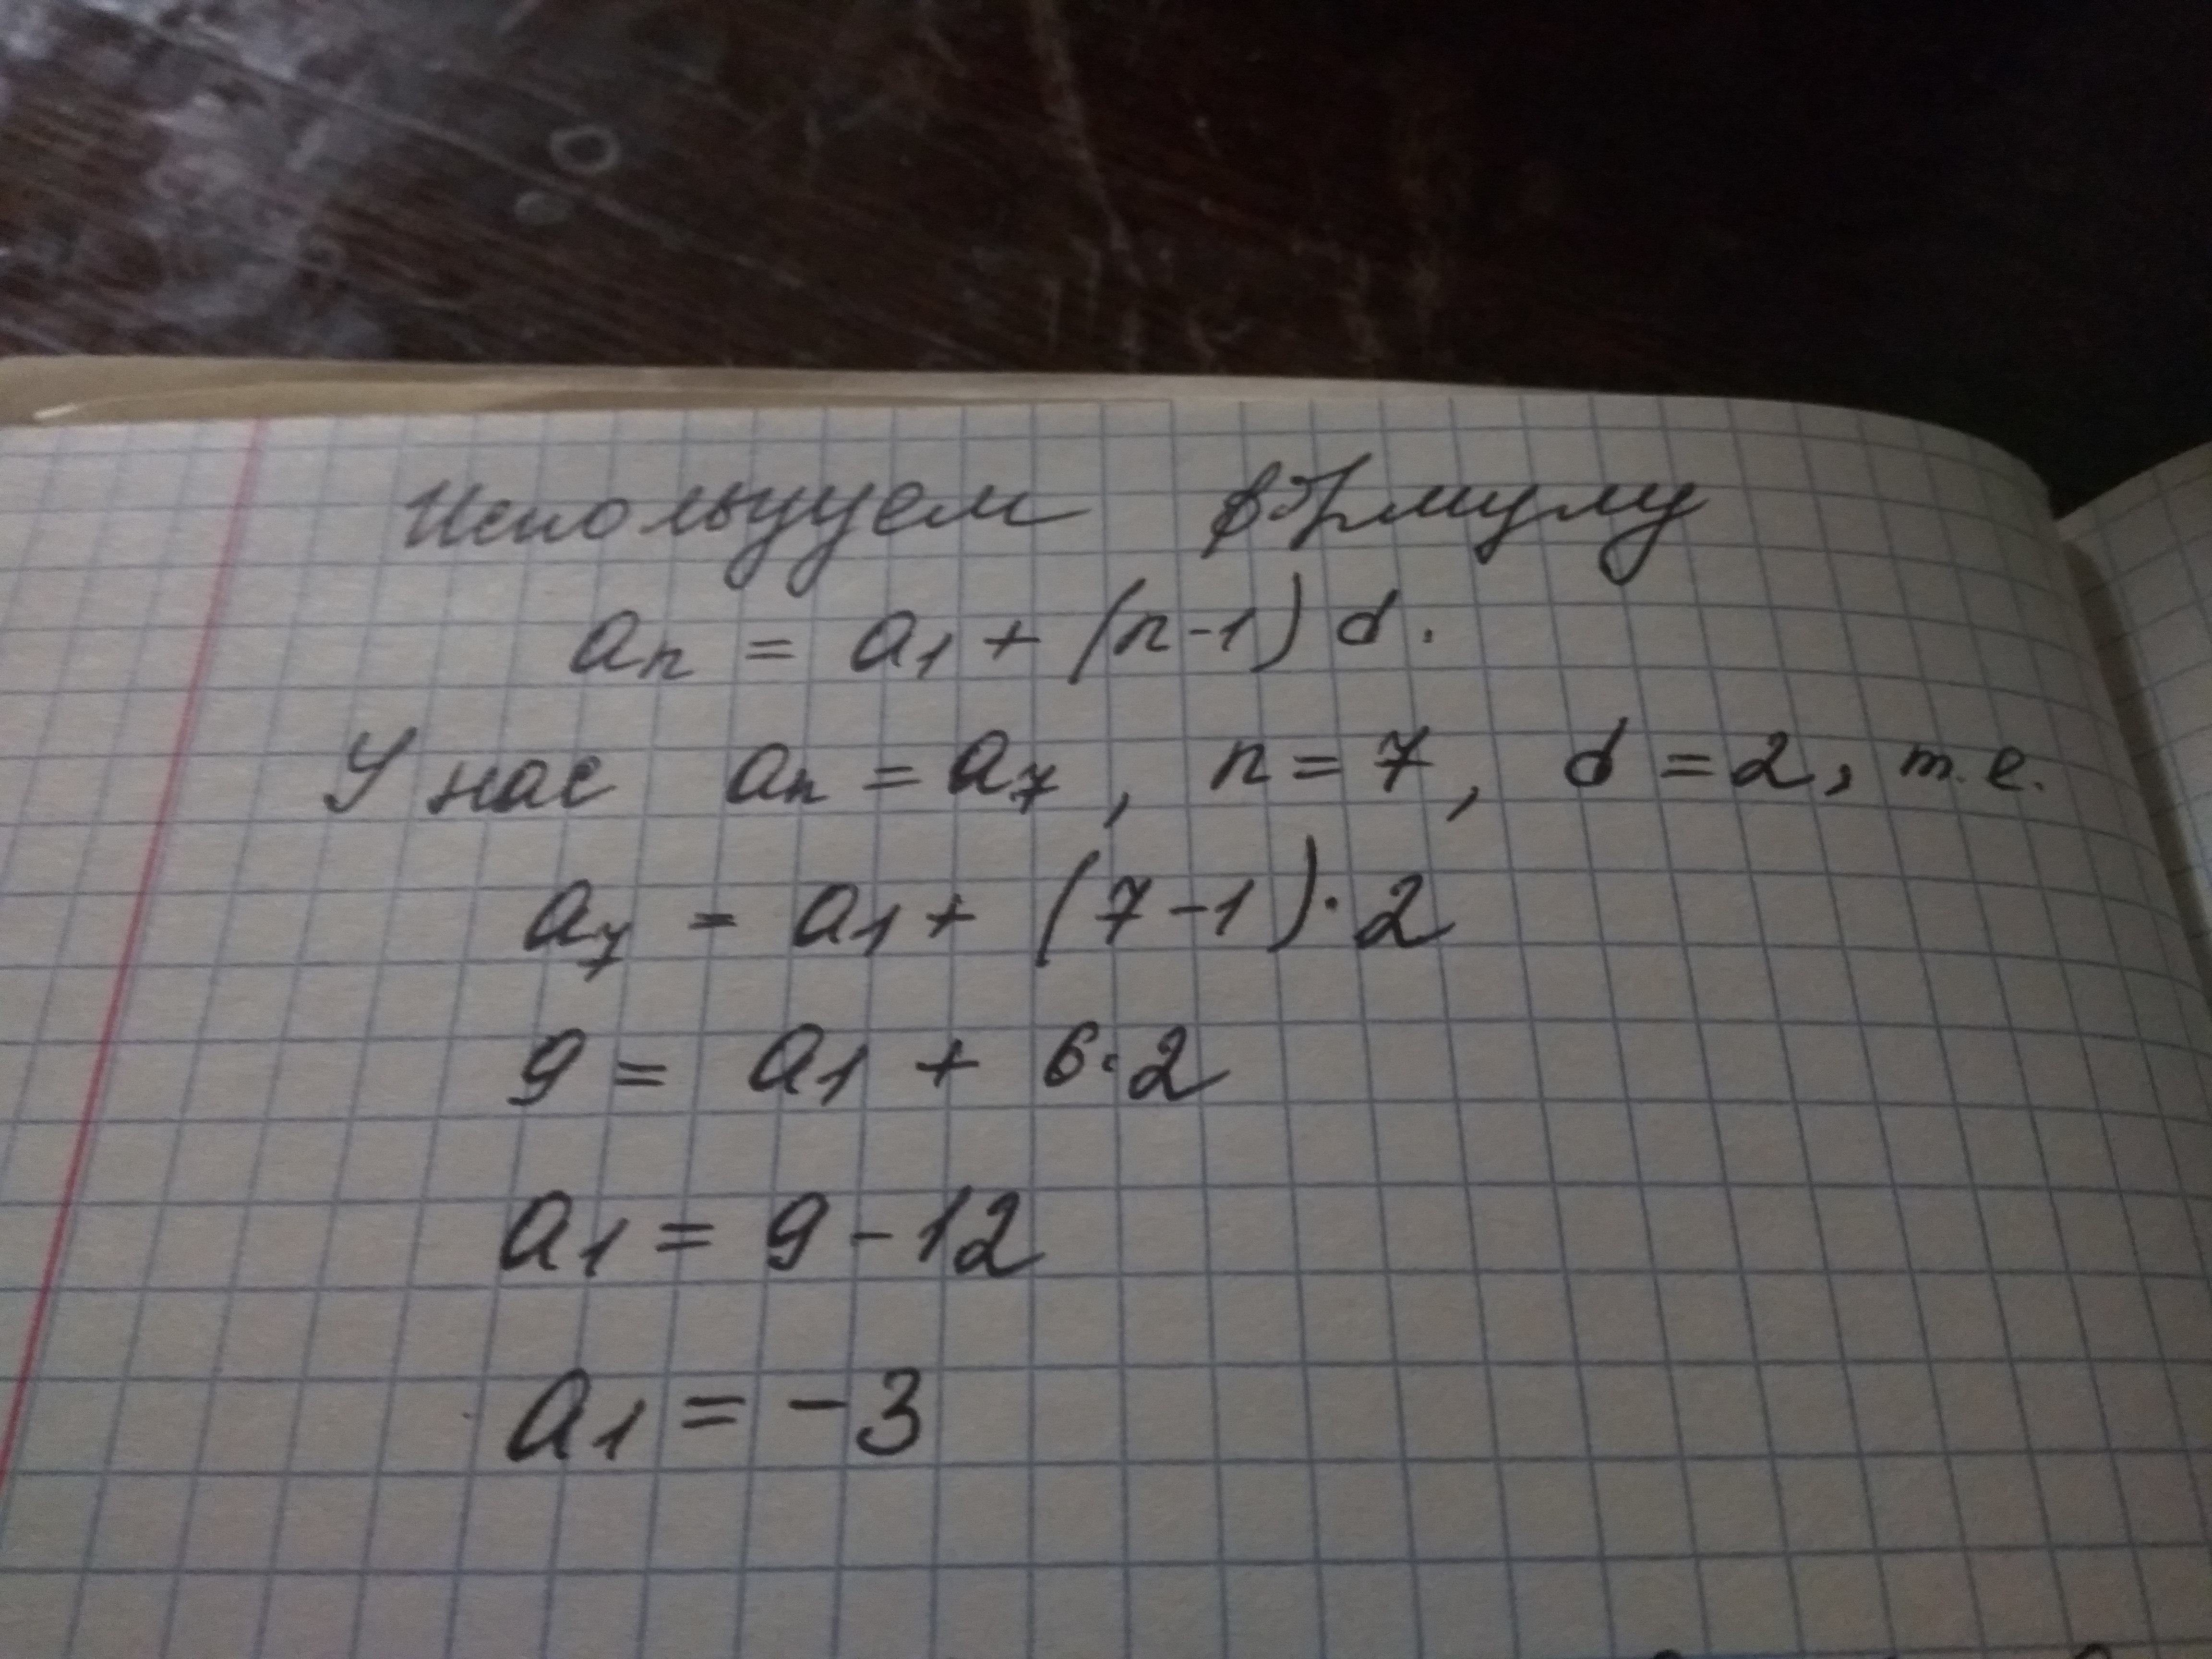 Используем формулу
aₙ = a₁ + (n-1) d.
У нас aₙ = a₇, n = 7, d = 2, т.е.
a₇ = a₁ + (7-1)·2
9 = a₁ + 6·2
a₁ = 9 - 12
a₁ = -3